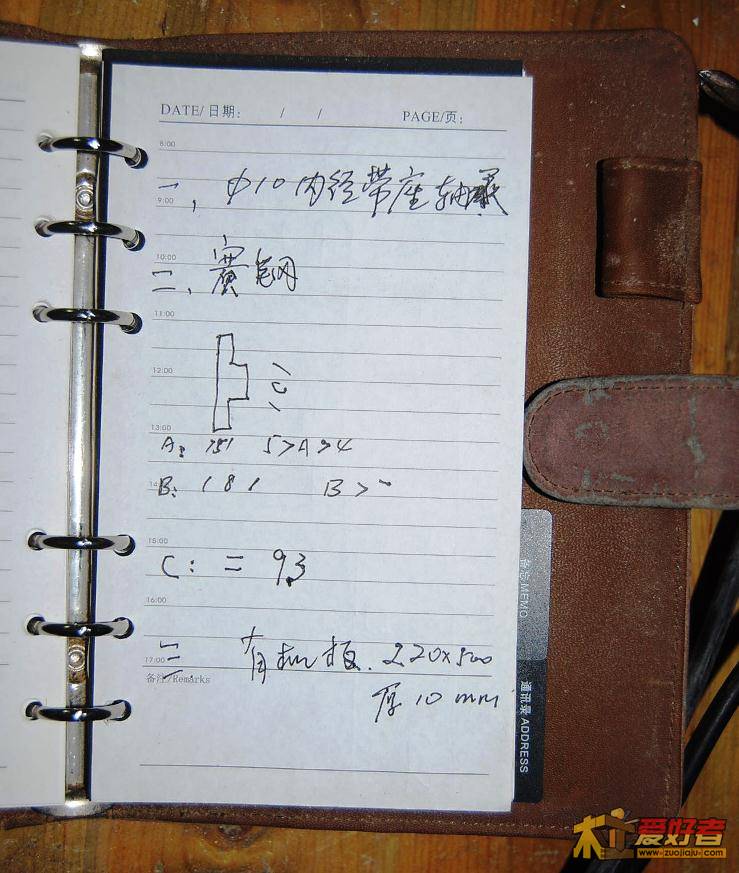 DATE/日期: / / PAGE/页:
8:00
一、φ10内径带座轴承
9:00
10:00
二、赛钢
11:00
12:00
(C)
13:00
A: 5>A>4
14:00
B: 181 B>
15:00
C: = 9.3
16:00
三. 有机板.220x500
17:00
备注/Remarks
厚10mm
备忘MEMO
通讯录 ADDRESS
木工爱好者
www.zuojiaju.com